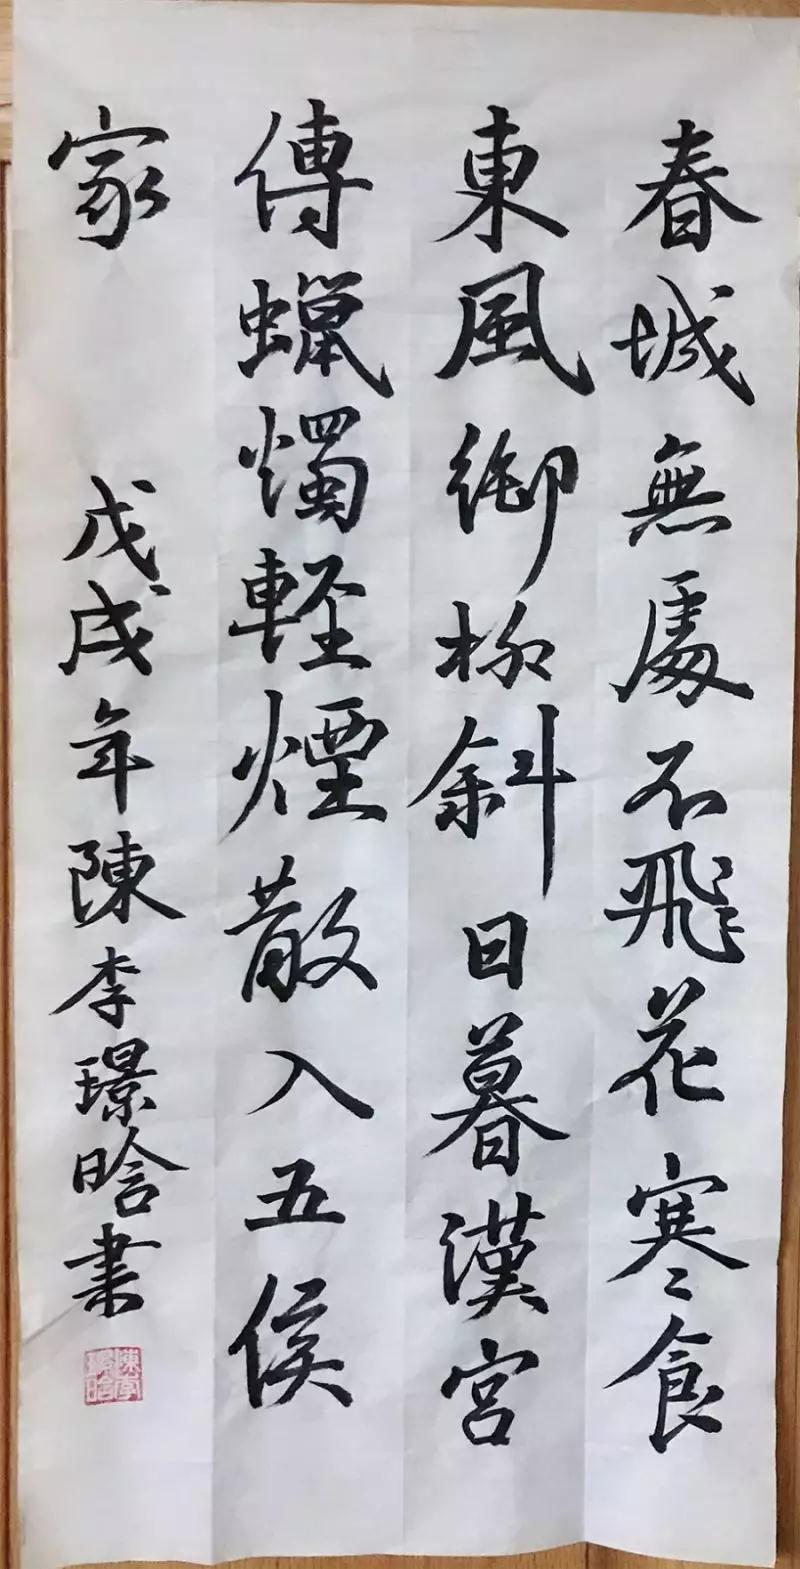 春城無處不飛花寒食
東風御柳斜日暮漢宮
傳蠟燭軽煙散入五侯
家
戊戌年陳李璟晗書
陳李璟晗